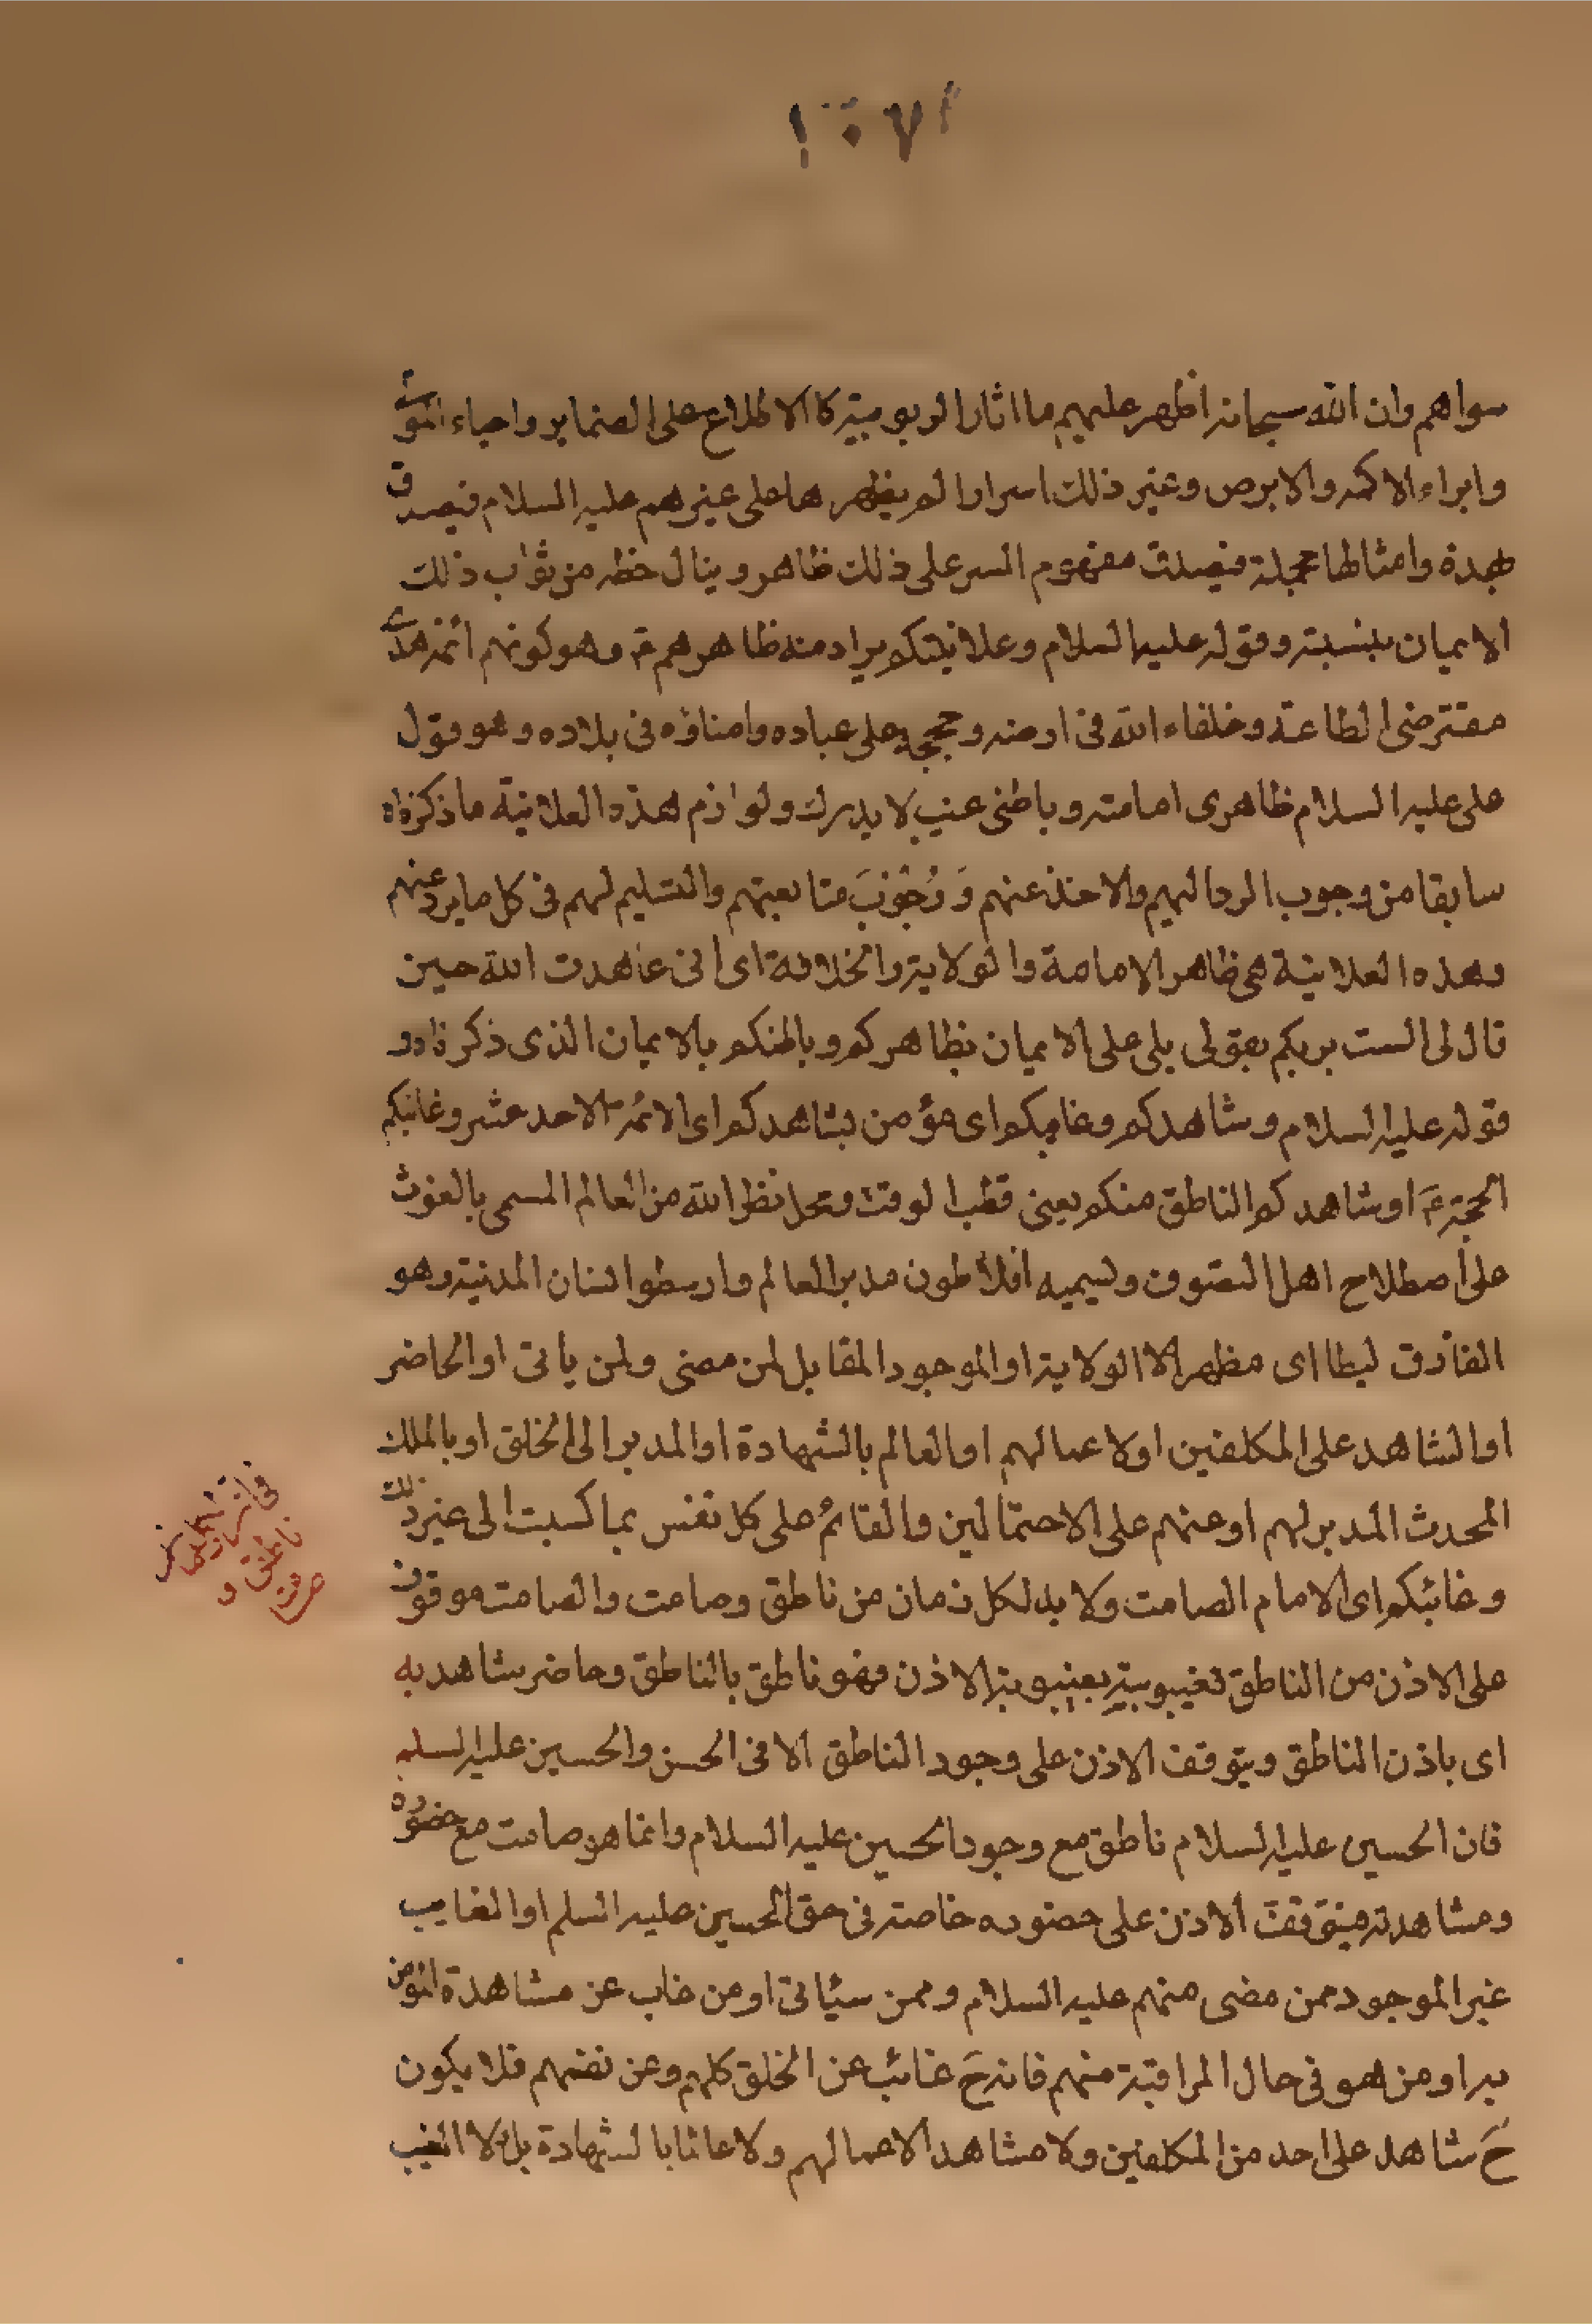 سواهم وان الله سبحانه اظهر عليهم ما اثار الربوبية كالاطلاع على الضماير واحياء الموتى
وابراء الاكمه والابرص وغير ذلك اسرارا لم يظهرها على غيرهم عليه السلام فيصدق
بهذه وامثالها مجملة فيصدق مفهوم السر على ذلك ظاهر وينال حظه من ثواب ذلك
الايمان بنسبته وقوله عليه السلام وعلانيتكم يراد منه ظاهرهم وهو كونهم ائمة هدى
مفترضى الطاعة وخلفاء الله فى ارضه وحججه على عباده وامناؤه فى بلاده وهو قول
على عليه السلام ظاهرى امامته وباطنى غيب لا يدرك ولوازم هذه العلانية ما ذكرناه
سابقا من وجوب الرد اليهم والاخذ عنهم ووجوب متابعتهم والتسليم لهم فى كل ما يرد عنهم
وهذه العلانية هى ظاهر الامامة والولاية والخلافة اى انى عاهدت الله حين
قال لى الست بربكم بقولى بلى على الايمان بظاهركم وباطنكم بالايمان الذى ذكرناه و
قوله عليه السلام وشاهدكم وغايبكم اى مؤمن بشاهدكم اى الائمة الاحد عشر وغائبكم
الحجة ع او شاهدكم الناطق منكم يعنى قطب الوقت ومحل نظر الله من العالم المسمى بالغوث
على اصطلاح اهل التصوف ويسميه افلاطون مدبر العالم وارسطو انسان المدنية وهو
الفاذق ليطا اى مظهر الولاية او الموجود المقابل لمن مضى ولمن ياتى او الحاضر
او الشاهد على المكلفين او لاعمالهم او العالم بالشهادة او المدبر الى الخلق او بالملك
المحدث المدبر لهم او عنهم على الاحتمالين والقائم على كل نفس بما كسبت الى غير ذلك
وغائبكم اى الامام الصامت ولا بد لكل زمان من ناطق وصامت والصامت موقوف
على الاذن من الناطق فغيبوبيته بغيبوبة الاذن فهو ناطق بالناطق وحاضر شاهد به
اى باذن الناطق ويتوقف الاذن على وجود الناطق الا فى الحسن والحسين عليه السلم
فان الحسين عليه السلام ناطق مع وجود الحسين عليه السلام وانما هو صامت مع حضوره
ومشاهدته فيتوقف الاذن على حضوره خاصة فى حق الحسين عليه السلم او الغايب
غير الموجود ممن مضى منهم عليه السلام وممن سيأتى او من غاب عن مشاهدة المؤمن
به او من هو فى حال المراقبة منهم فانه ح غائب عن الخلق كلهم وعن نفسهم فلا يكون
ح شاهد على احد من المكلفين ولا مشاهدا لاعمالهم ولا عالما بالشهادة بل ولا الغيب